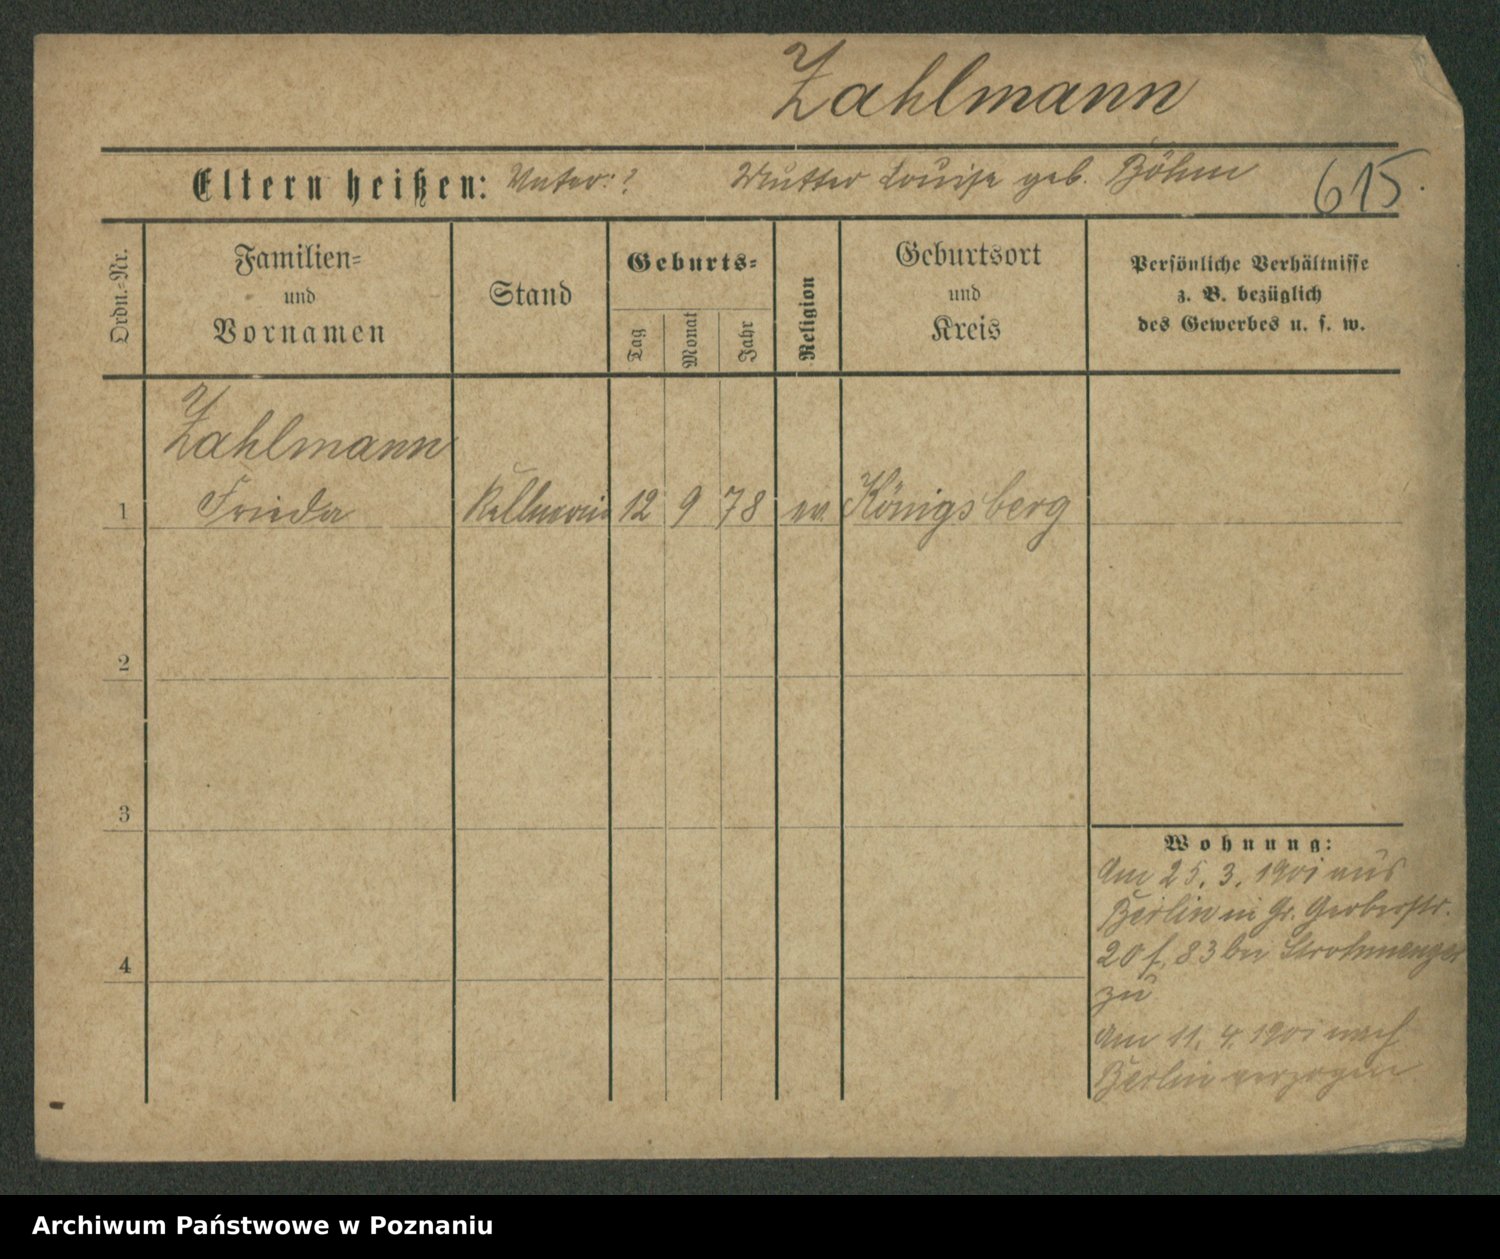 Zahlmann
Eltern heißen: Vater: ? Mutter Louise geb. Böhm 615.
Ordn.-Nr.
Familien-
und
Vornamen
Stand
Geburts-
Tag
Monat
Jahr
Religion
Geburtsort
und
Kreis
Persönliche Verhältnisse
z. B. bezüglich
des Gewerbes u. s. w.
Zahlmann
1 Frieda Kellnerin 12 9 78 ev. Königsberg
2
3
Wohnung:
Am 25. 3. 1901 aus
Berlin in Gr. Gerberstr.
20 f. 83 bei Strohmenger
zu
4
Am 11. 4. 1901 nach
Berlin verzogen.
Archiwum Państwowe w Poznaniu